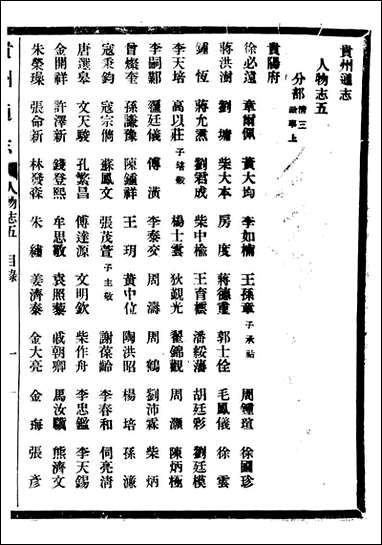 貴州通志
人物志五
分部 清三 政事上
貴陽府
徐必遠 章爾佩 黃大均 李如楠 王孫章 子承祜 周鍾瑄 徐國珍
蔣洪澍 劉墉 柴大本 房度 蔣德重 郭士佺 毛鳳儀 徐雲
鍾恆 蔣允焄 劉君成 柴中楡 王育𣚴 潘綏藩 胡廷彩 劉廷模
李天培 高以莊 子培榖 楊士雲 狄觀光 翟錦觀 周灝 陳炳極
李嗣鄴 羅廷儀 傅潢 李泰交 周濤 周鶴 劉沛霖 柴炳
曾燦奎 孫謙豫 陳鍾祥 王玥 黃中位 陶洪昭 楊培 孫濂
寇秉鈞 寇宗儁 蘇鳳文 張茂萱 子主敬 謝葆齡 李春和 伺亮清
唐選皋 文天駿 孔繁昌 傅達源 文明欽 柴作舟 李忠鑑 李天錫
金開祥 許澤新 錢登熙 牟思敬 袁照藜 戚朝卿 馬汝驥 熊濟文
朱榮璪 張命新 林發森 朱繡 姜濟泰 金大亮 金海 張彥
貴州通志 人物志五 目錄 一